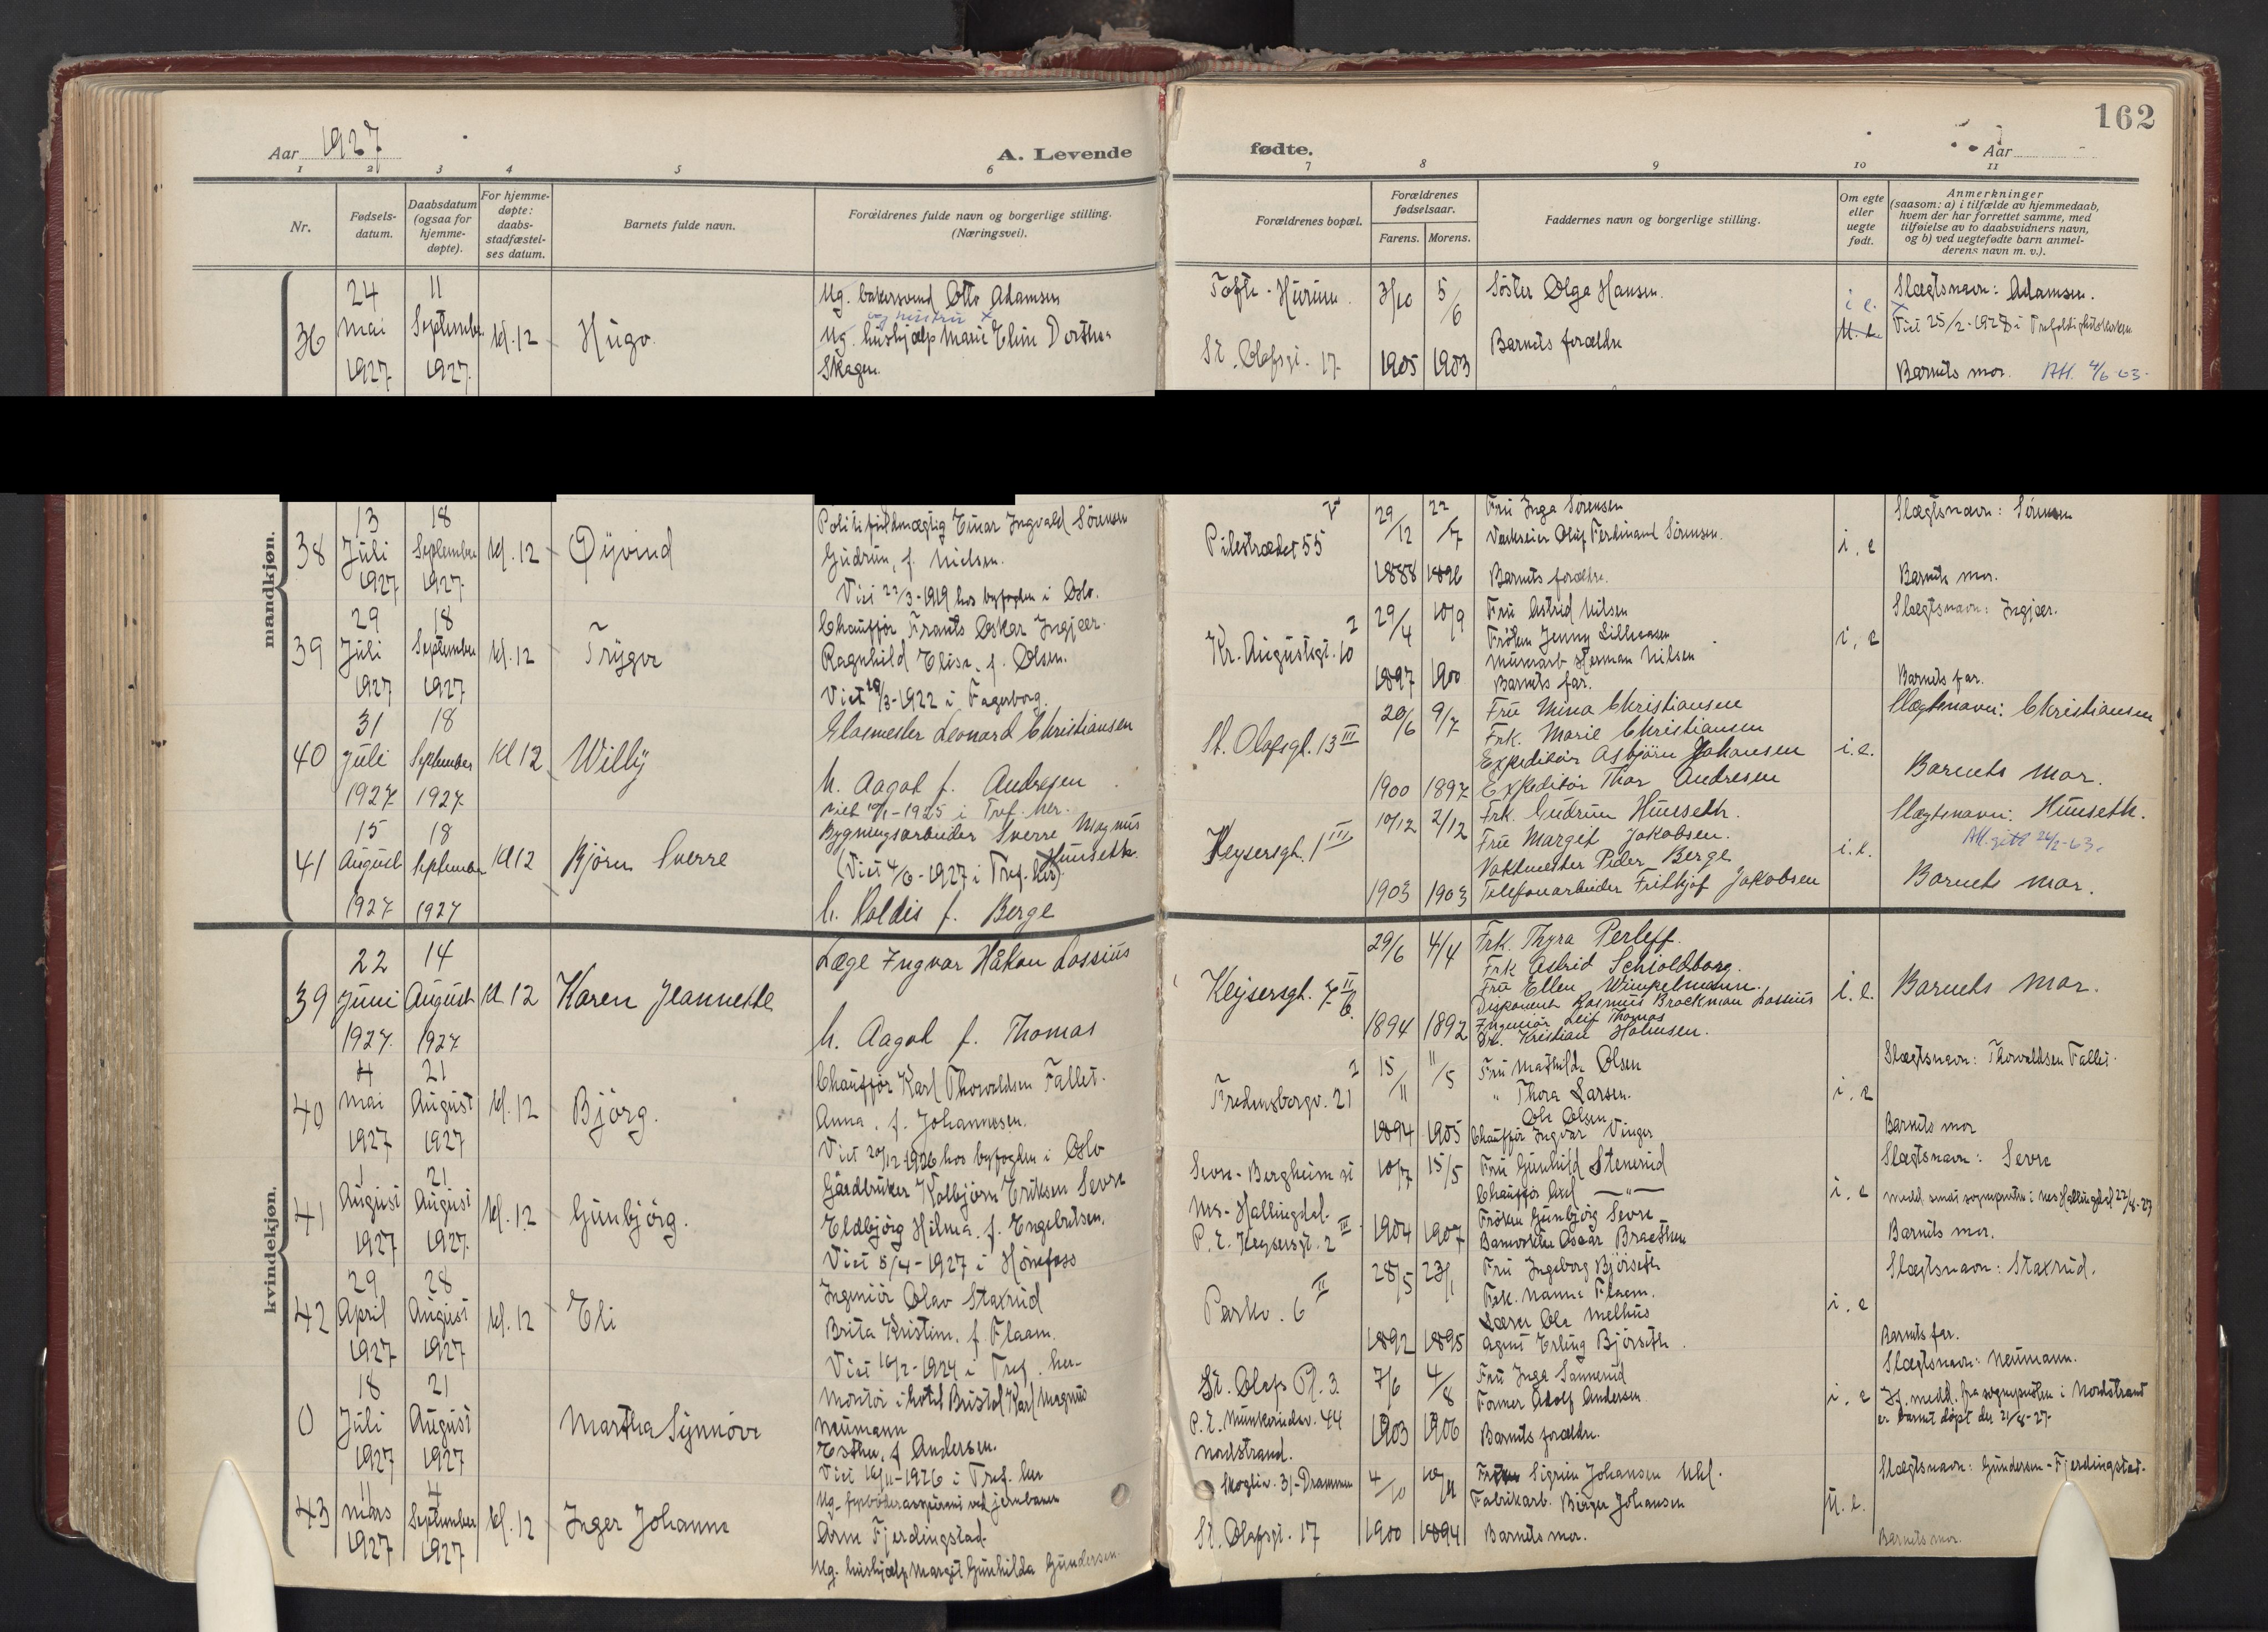 162
Aar 1927
A. Levende
fødte.
Aar
1 2 3 4 5 6 7 8 9 10 11
Nr.
Fødsels-
datum.
Daabsdatum
(ogsaa for
hjemme-
døpte).
For hjemme-
døpte:
daabs-
stadfæstel-
ses datum.
Barnets fulde navn.
Forældrenes fulde navn og borgerlige stilling.
(Næringsvei).
Forældrenes bopæl.
Forældrenes
fødselsaar.
Farens. Morens.
Faddernes navn og borgerlige stilling.
Om egte
eller
uegte
født.
Anmerkninger
(saasom: a) i tilfælde av hjemmedaab,
hvem der har forrettet samme, med
tilføielse av to daabsvidners navn,
og b) ved uegtefødte barn anmel-
derens navn m. v.).
mandkjøn.
36
24
Mai
1927
11
September
1927.
kl. 12
Hugo
Ug. bakersvend Otto Adamsen
og hustru x
Ug. hushjælp Marie Eline Dorthea
Skagen.
Tofte - Hurum.
St. Olafsgt. 17
3/10
1905
5/6
1903
Søster Olga Hansen.
Barnets forældre
i e.
U. e.
Slægtsnavn: Adamsen.
x Viet 25/2-1928 i Trefoldighetskirken
Barnets mor.
4/6-63.
38
13
Juli
1927
18
September
1927.
kl. 12
Øyvind
Politifuldmægtig Einar Ingvald Sörensen
Gudrun, f. Nielsen.
Viet 22/3-1919 hos byfogden i Oslo.
Pilestrædet 55
29/12
1888
22/7
1896
Fru Inga Sörensen
Værkseier Oluf Ferdinand Sörensen.
Barnets forældre.
i. e
Slægtsnavn: Sörensen
Barnets mor.
39
29
Juli
1927
18
September
1927
kl. 12
Trygve
Chauffør Frants Oskar Ingjær.
Ragnhild Elise, f. Olsen.
Viet 19/3-1922 i Fagerborg.
Kr. Augustsgt. 10
29/4
1897
10/9
1900
Fru Astrid Nilsen
Frøken Jenny Lillevaasen
Murerarb. Herman Nilsen
Barnets far.
i, e
Slægtsnavn: Ingjær.
Barnets far.
40
31
juli
1927
18
September
1927.
Kl 12
Willy
Glasmester Leonard Christiansen
h. Aagot f. Andresen
viet 10/1-1925 i Tref. her.
St. Olafsgt. 13 III
20/6
1900
9/7
1897
Fru Mina Christiansen
Frk. Marie Christiansen
Expeditör Asbjörn Johansen
Expeditör Thor Andresen
i.e.
Slægtsnavn: Christiansen
Barnets mor.
41
15
August
1927
18
September
1927
Kl 12
Björn Sverre
Bygningsarbeider Sverre Magnus
Huuseth.
(Viet 4/6-1927 i Tref. her).
h. Valdis f. Berge
Keysersgt. 1 III
10/12
1903
2/12
1903
Frk. Gudrun Huuseth.
Fru Margit Jakobsen.
Vaktmester Peder Berge
Telefonarbeider Frithjof Jakobsen
i.e.
Slægtsnavn: Huuseth.
24/2-63.
Barnets mor.
kvindekjøn.
39
22
Juni
1927.
14
August
1927
Kl 12
Karen Jeannette
Læge Ingvar Håkon Lossius
h. Aagot f. Thomas
Keysersgt. 7 II
29/6
1894
4/4
1892
Frk. Thyra Perleff.
Frk Astrid Schioldborg.
Fru Ellen Winpelmann.
Disponent Rasmus Brockman Lossius
Ingeniör Leif Thomas
Dr. Kristian Holmsen.
i.e.
Barnets mor.
40
4
Mai
1927
21
August
1927
kl. 12
Björg.
Chauffør Karl Thorvaldsen Fallet.
Anna, f. Johannesen.
Viet 20/12-1926 hos byfogden i Oslo
Fredensborgv. 21
15/11
1894
11/5
1905
Fru Mathilde Olsen
" Thora Larsen.
Ole Olsen
Chauffør Ingvar Vinger
i. e
Slægtsnavn: Thorvaldsen Fallet.
Barnets mor
41
1
August
1927
21
August
1927.
kl. 12
Gunbjörg.
Gårdbruker Kolbjörn Eriksen Sevre
Eldbjörg Hilma. f. Engebretsen.
Viet 5/4-1927 i Hönefoss
Sevre - Bergheim st
Nes - Hallingdal.
P. t. Keysersgt. 2 III
10/7
1904
15/5
1907
Fru Gunhild Stenerud
Chauffør Axel —"—
Fröken Gunbjörg Sevre
Oscar Braathen
i. e
Slægtsnavn: Sevre
medd. sendt sognepresten i Nes Hallingdal 22/8-27
Barnets mor.
42
29
April
1927
28
August
1927
kl. 12
Eli
Ingeniör Olav Staxrud
Brita Kristine, f. Flaam.
Viet 16/2-1924 i Tref. her.
Parkv. 6 II
28/5
1892
23/1
1895
Fru Ingeborg Björseth
Frk. Nanna Flaam.
Lærer Ole Melhus
Agent Erling Björseth.
i. e
Slægtsnavn: Staxrud.
Barnets far.
0
18
Juli
1927
21
August
1927
Martha Synnöve
Montör i hotel Bristol Karl Magnus
Neumann
Esther, f Andersen.
Viet 16/11-1926 i Tref. her
St. Olafs Pl. 3
P. t. Munkerudv. 44
Nordstrand.
7/6
1903
4/8
1906
Fru Inga Sannerud
Former Adolf Andersen
Barnets forældre.
i. e
Slægtsnavn: Neumann.
If. medd. fra sognepresten i Nordstrand
er barnet döpt der 21/8-27.
43
11
Mars
1927
4
September
1927
kl. 12
Inger Johanne
Ug. fyrböderaspirant ved jernbanen
Arne Fjerdingstad.
Ug. hushjælp Margit Gunhilda Gundersen.
Skogliv. 31-Drammen
St. Olafsgt. 17
4/10
1900
1894
Sigrun Johansen Uhl.
Fabrikarb. Birger Johansen
Barnets mor.
U. e.
Slægtsnavn: Gundersen-Fjerdingstad.
Barnets mor.